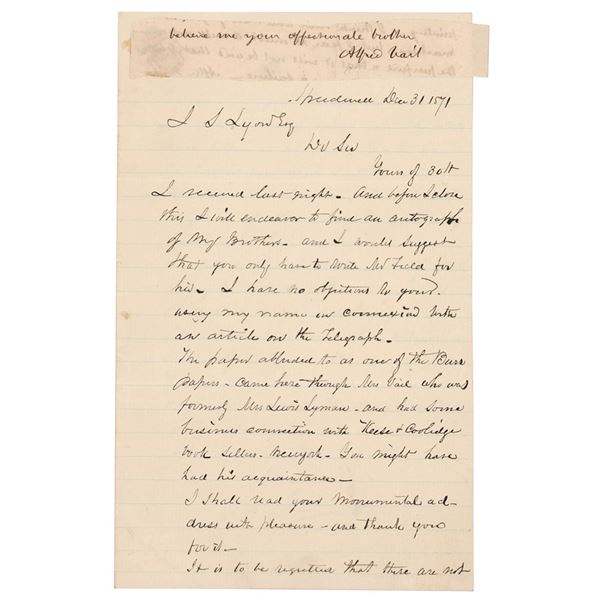 believe me your affectionate brother
Alfred Vail
Speedwell Dec 31 1871
J S Lyon Esq
Dr Sir
Yours of 30th
I received last night - And before I close
this I will endeavor to find an autograph
of My Brothers - and I would suggest
that you only have to write Mr Field for
his - I have no objections to your
using my name in connexion with
an article on the Telegraph -
The paper alluded to as one of the Burr
papers - came here through Mrs Vail who was
formerly Mrs Lewis Lyman - and had some
business connection with Keese & Coolidge
book Sellers - Newyork - You might have
had his acquaintance -
I Shall read your Monumental ad-
dress with pleasure - and thank you
for it -
It is to be regretted that there are not